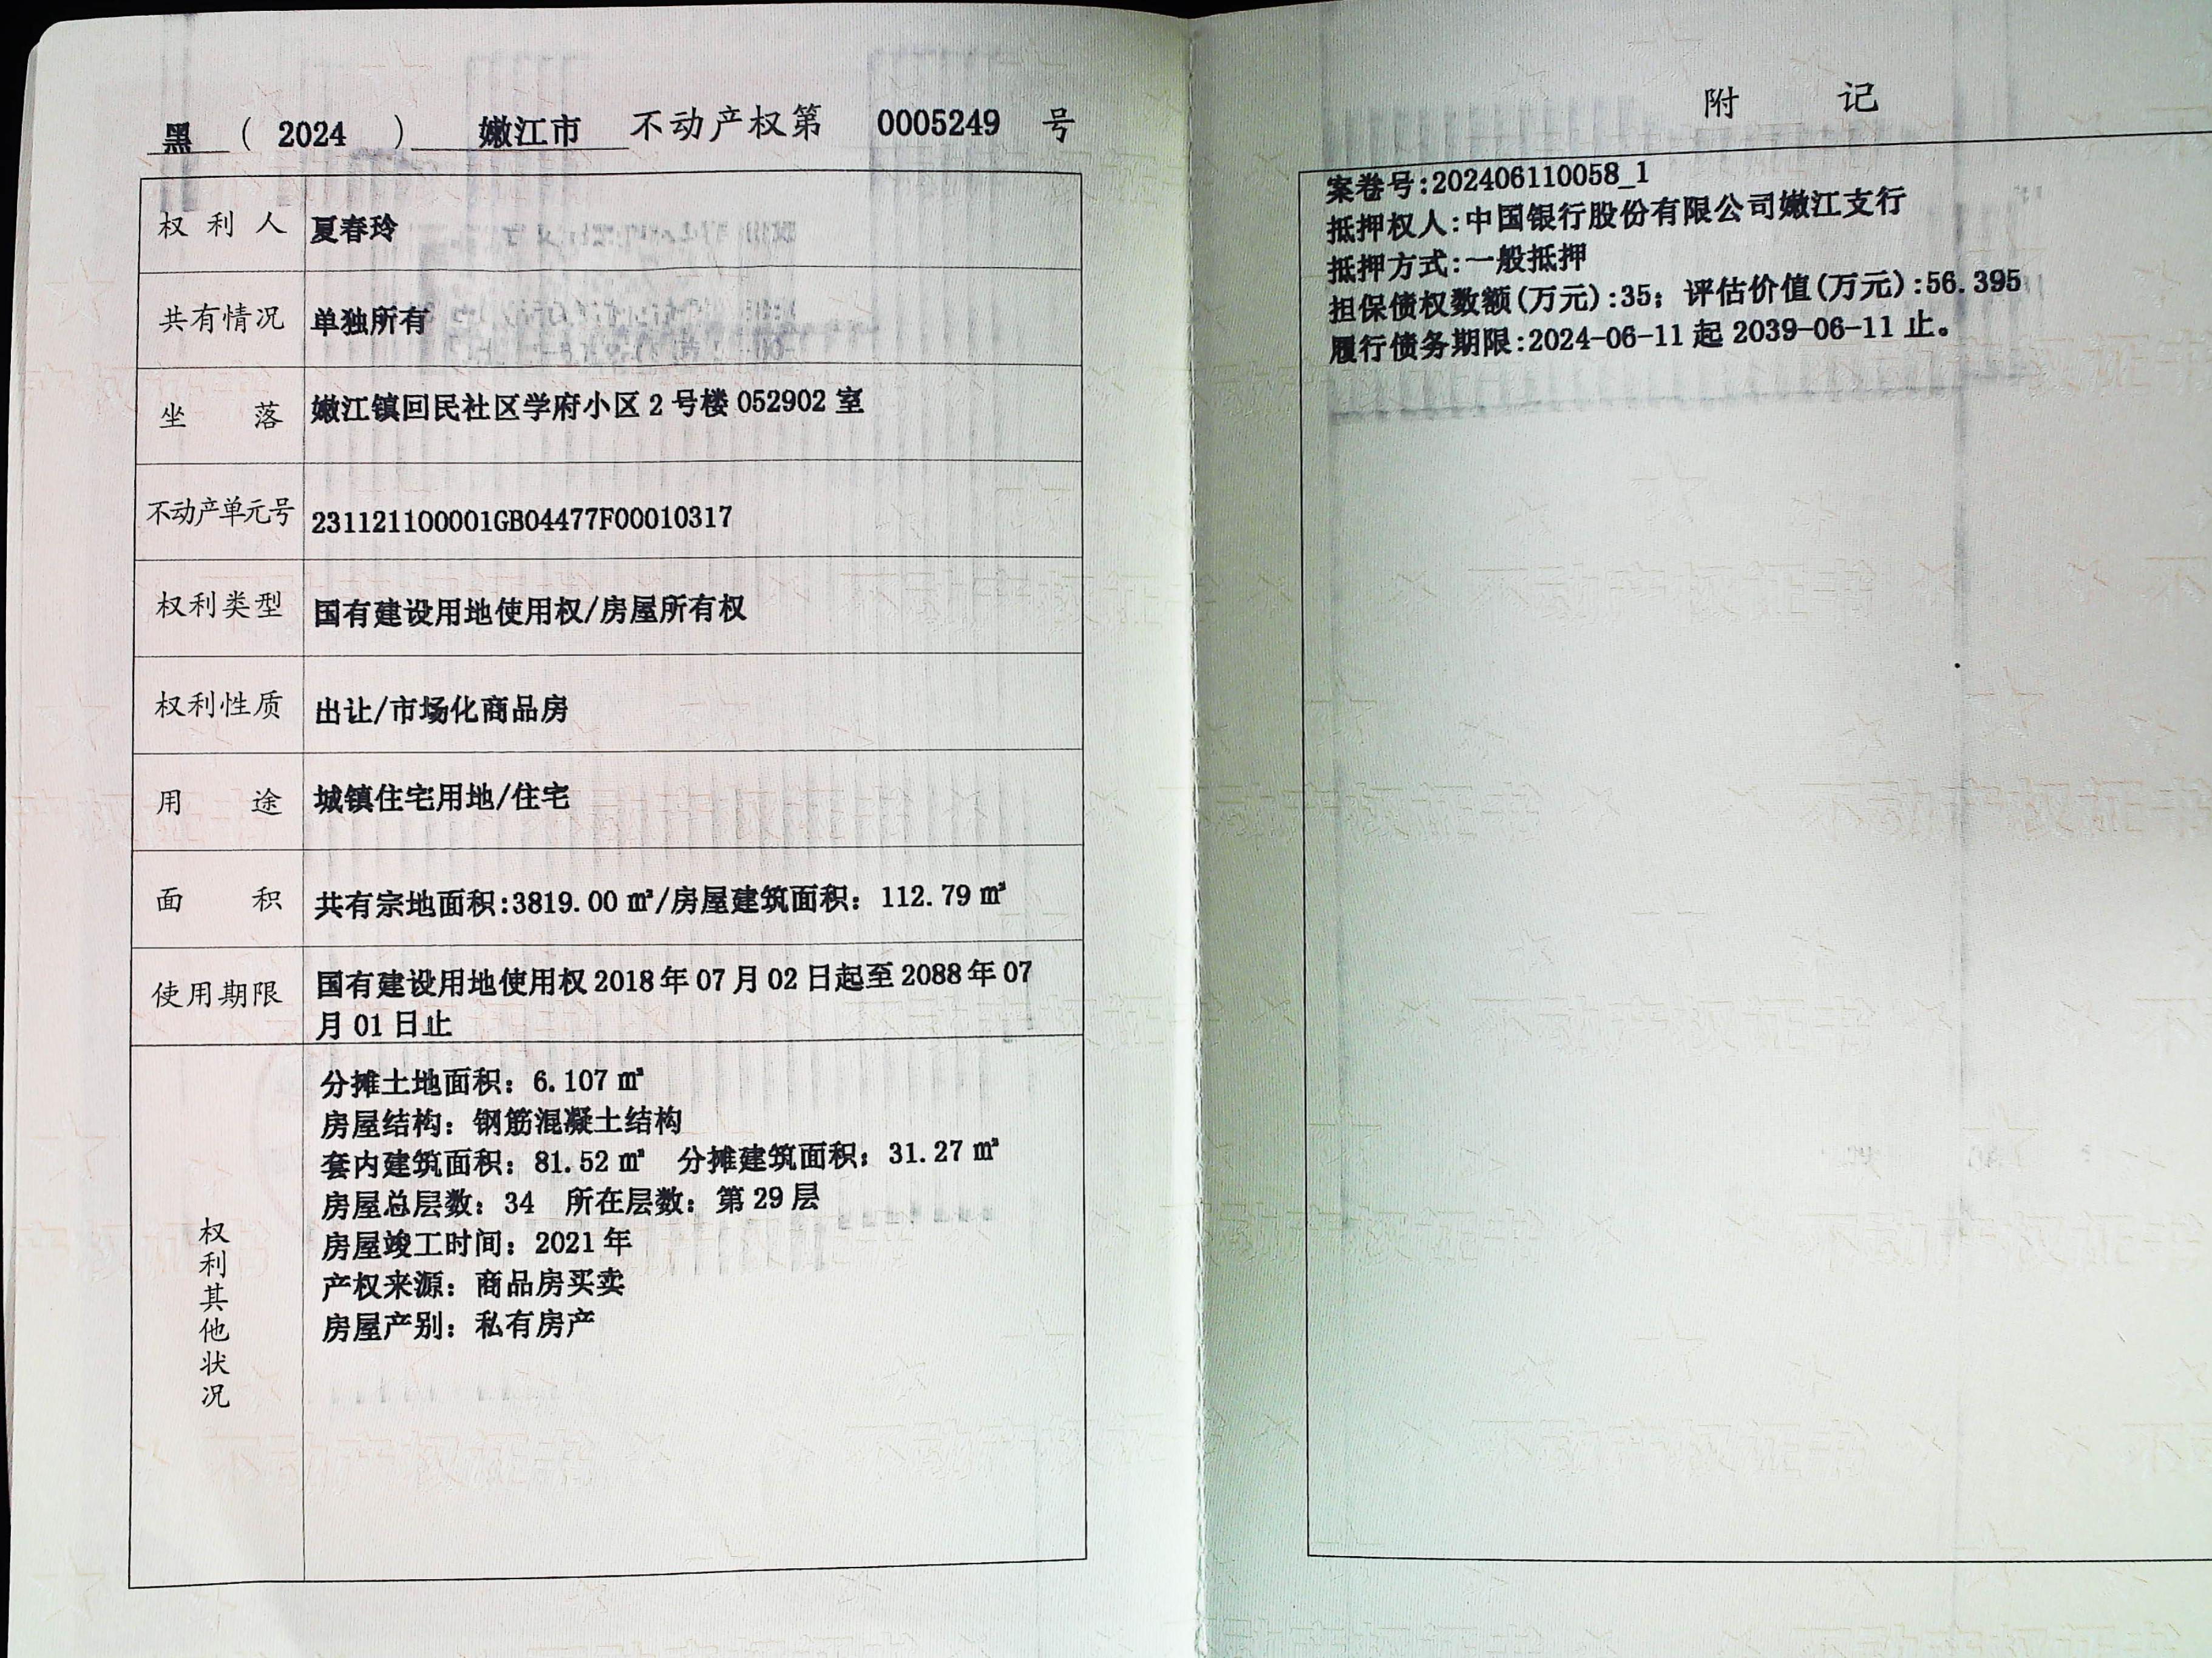 黑 ( 2024 ) 嫩江市 不动产权第 0005249 号
权利人 夏春玲
共有情况 单独所有
坐落 嫩江镇回民社区学府小区 2 号楼 052902 室
不动产单元号 231121100001GB04477F00010317
权利类型 国有建设用地使用权/房屋所有权
权利性质 出让/市场化商品房
用途 城镇住宅用地/住宅
面积 共有宗地面积:3819.00 ㎡/房屋建筑面积: 112.79 ㎡
使用期限 国有建设用地使用权 2018 年 07 月 02 日起至 2088 年 07
月 01 日止
权利其他状况
分摊土地面积: 6.107 ㎡
房屋结构: 钢筋混凝土结构
套内建筑面积: 81.52 ㎡ 分摊建筑面积: 31.27 ㎡
房屋总层数: 34 所在层数: 第 29 层
房屋竣工时间: 2021 年
产权来源: 商品房买卖
房屋产别: 私有房产
附 记
案卷号:202406110058_1
抵押权人:中国银行股份有限公司嫩江支行
抵押方式:一般抵押
担保债权数额(万元):35; 评估价值(万元):56.395
履行债务期限:2024-06-11 起 2039-06-11 止。